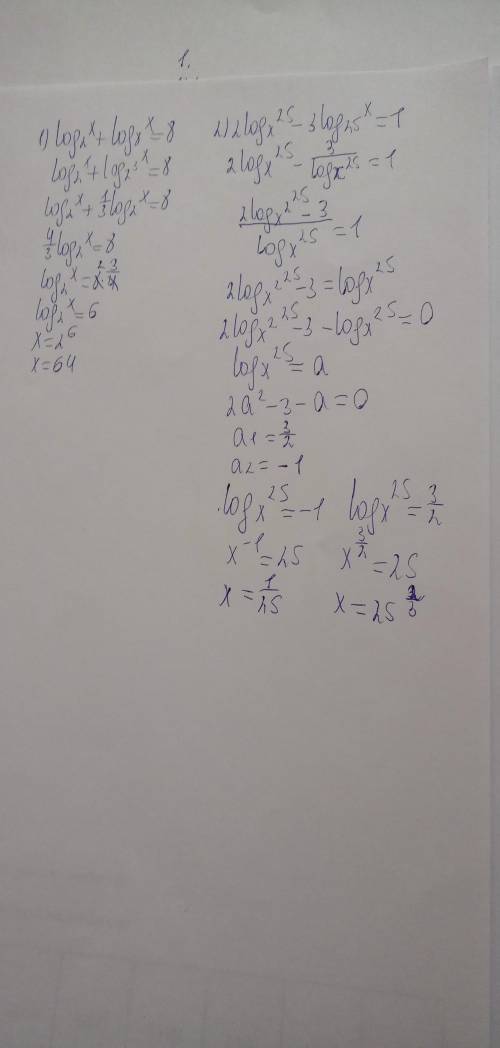 1.
1) log₂ˣ + log₈ˣ = 8
log₂ˣ + log₂³ˣ = 8
log₂ˣ + 1/3 log₂ˣ = 8
4/3 log₂ˣ = 8
log₂ˣ = 8² · 3/4
log₂ˣ = 6
x = 2⁶
x = 64
2) 2logₓ²⁵ - 3log₂₅ˣ = 1
2logₓ²⁵ - 3/logₓ²⁵ = 1
(2logₓ²²⁵ - 3)/logₓ²⁵ = 1
2logₓ²²⁵ - 3 = logₓ²⁵
2logₓ²²⁵ - 3 - logₓ²⁵ = 0
logₓ²⁵ = a
2a² - 3 - a = 0
a₁ = 3/2
a₂ = -1
logₓ²⁵ = -1 logₓ²⁵ = 3/2
x⁻¹ = 25 x^(3/2) = 25
x = 1/25 x = 25^(2/3)